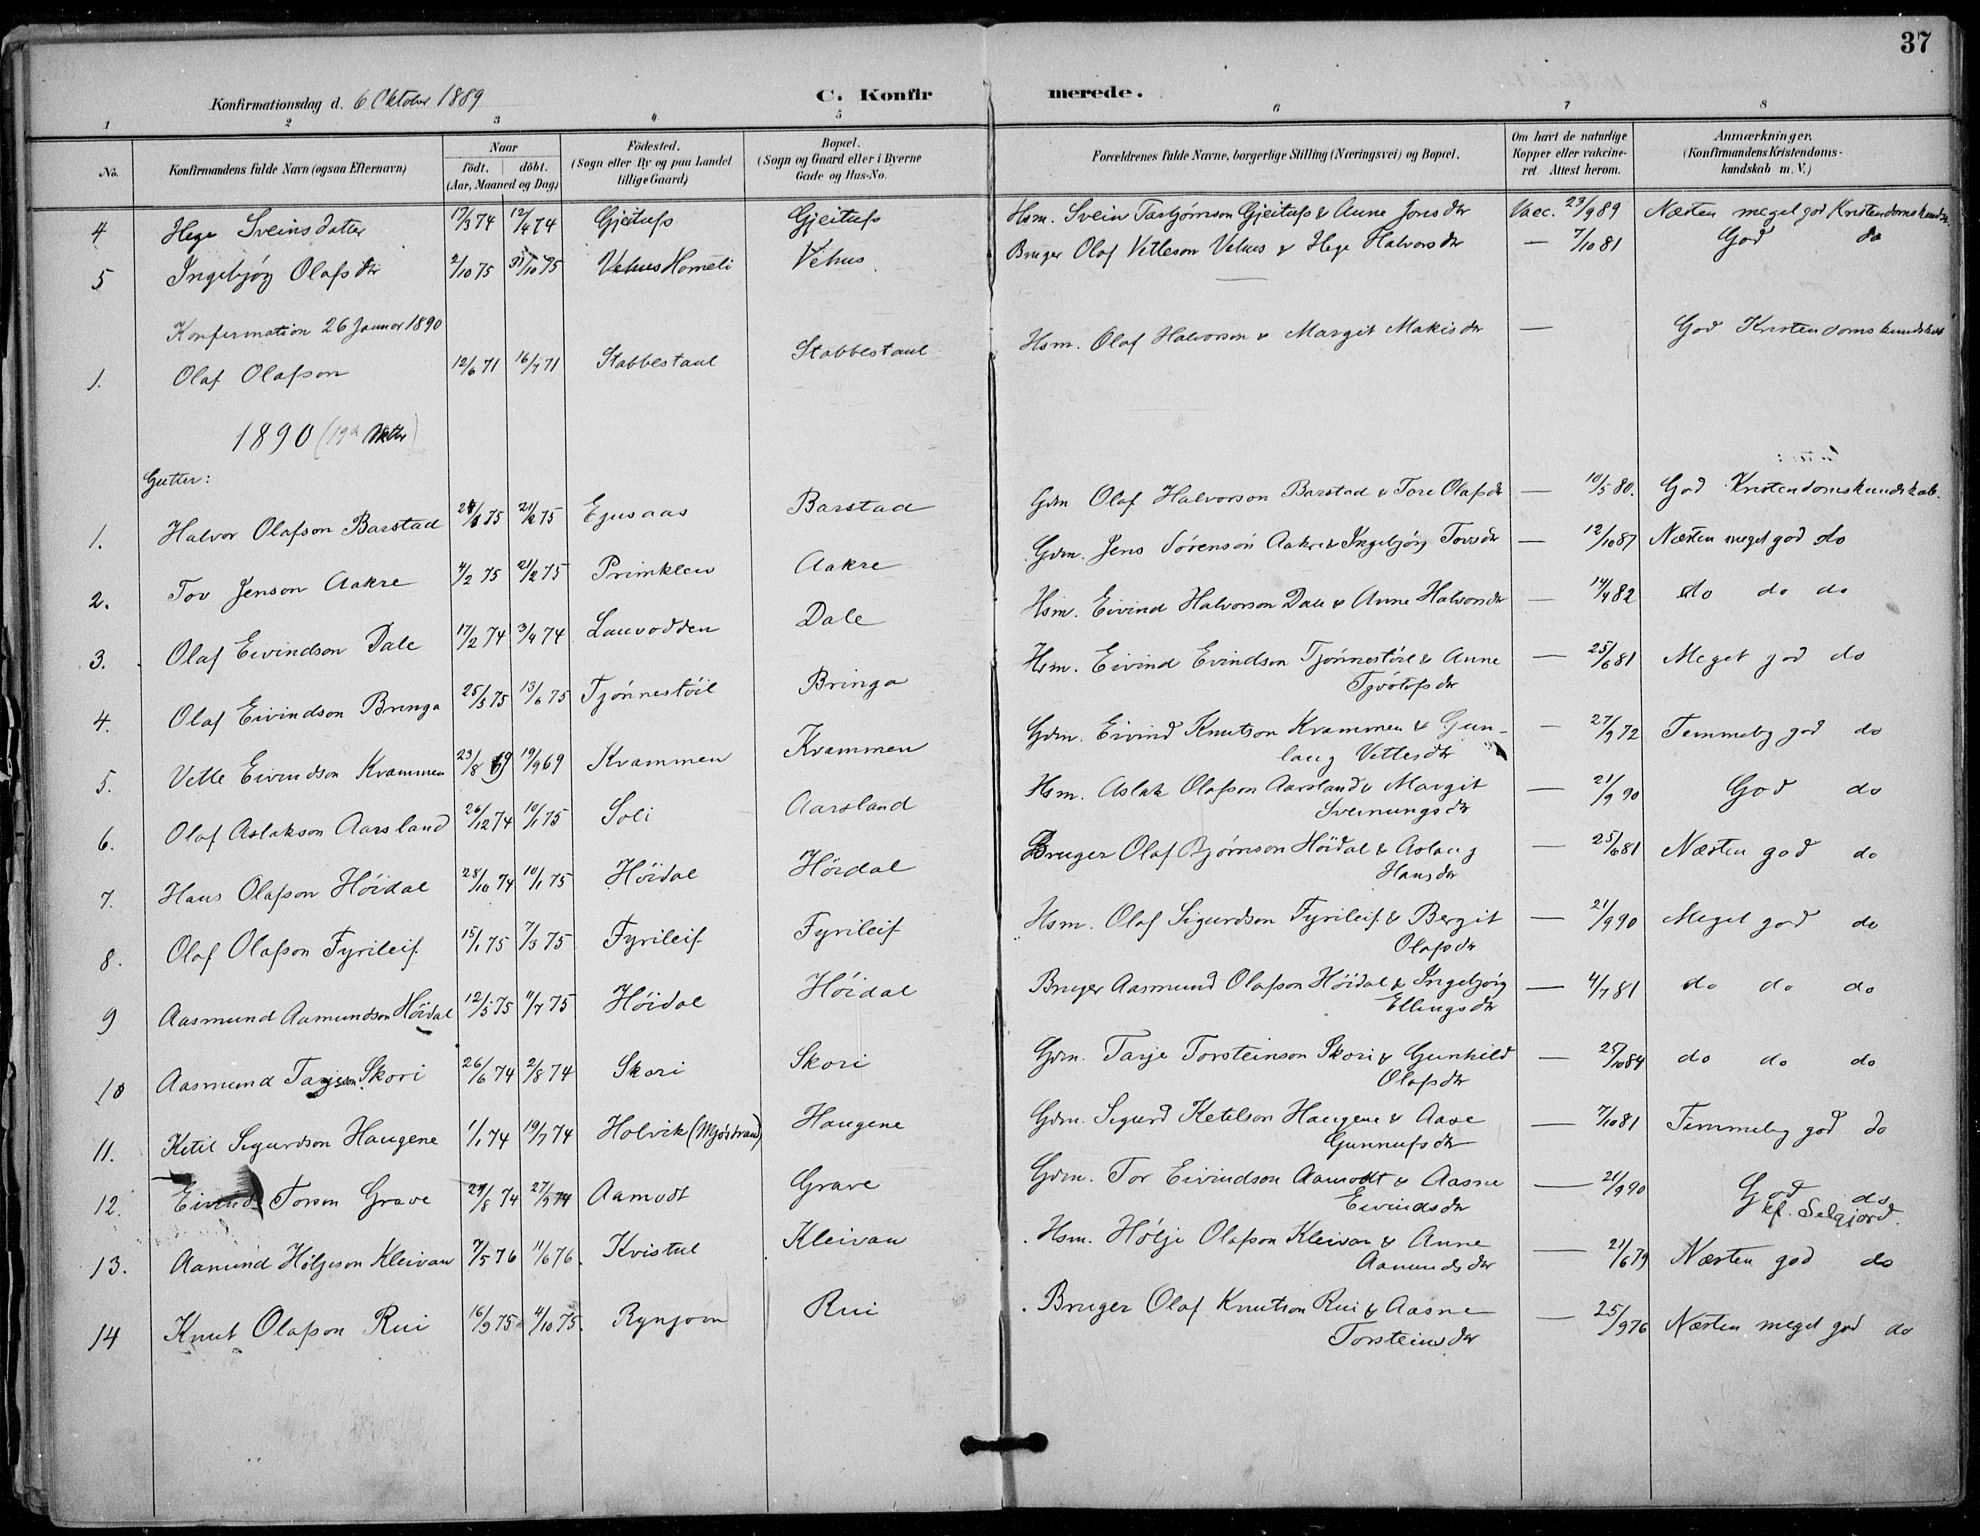 37
Konfirmationsdag d. 6 Oktober 1889
C. Konfir merede.
1 2 3 4 5 6 7 8
No. Konfirmandens fulde Navn (ogsaa Efternavn) Naar födt. döbt. (Aar, Maaned og Dag) Födested. (Sogn eller By og paa Landet tillige Gaard) Bopæl. (Sogn og Gaard eller i Byerne Gade og Hus-No. Forældrenes fulde Navne, borgerlige Stilling (Næringsvei) og Bopæl. Om havt de naturlige Kopper eller vakcineret. Attest herom. Anmærkninger. (Konfirmandens Kristendomskundskab m. V.)
4 Hege Sveinsdatter 17/3 74 12/4 74 Gjeitufs Gjeitufs Hsm. Svein Tarjørnson Gjeitufs & Anne Jonsdtr Vacc. 23/9 89 Næsten meget god Kristendomskundsk.
5 Ingebjørg Olafsdtr 2/10 75 31/10 75 Vehus Homeli Vehus Bruger Olaf Vetleson Vehus & Hege Halvorsdtr — 7/10 81 God do
Konfirmation 26 Januar 1890
1. Olaf Olafson 12/6 71 16/7 71 Stabbestaul Stabbestaul Hsm. Olaf Halvorson & Margit Makisdtr — God Kristendomskundskab
1890
Gutter:
1. Halvor Olafson Barstad 24/1 75 21/2 75 Ejusaas Barstad Gdm Olaf Halvorson Barstad & Tore Olafsdtr — 10/5 80. God Kristendomskundskab.
2. Tov Jenson Aakre 4/2 75 21/2 75 Primklev Aakre Gdm. Jens Sørenson Aakre & Ingebjørg Tovsdtr — 12/10 87 Næsten meget god do
3. Olaf Eivindson Dale 17/2 74 3/4 74 Lauvodden Dale Hsm. Eivind Halvorson Dale & Anne Halvorsdtr — 14/4 82 do do do
4. Olaf Eivindson Bringa 25/5 75 13/6 75 Tjønnestöil Bringa Hsm. Eivind Evindson Tjønnestöil & Anne — 25/6 81 Meget god do
Tjvötufsdtr
5. Vetle Eivindson Kvammen 23/8 69 19/9 69 Kvammen Kvammen Gdm. Eivind Knutson Kvammen & Gun- — 27/9 72 Temmelig god do
laug Vettesdtr
6. Olaf Aslakson Aarsland 26/12 74 10/1 75 Soli Aarsland Hsm. Aslak Olafson Aarsland & Margit — 21/9 90 God do
Sveinungsdtr
7. Hans Olafson Höidal 28/10 74 10/1 75 Höidal Höidal Bruger Olaf Bjørnson Höidal & Aslaug — 25/6 81 Næsten god do
Hansdtr
8. Olaf Olafson Fyrileif 15/1 75 7/3 75 Fyrileif Fyrileif Hsm. Olaf Sigurdson Fyrileif & Bergit — 21/9 90 Meget god do
Olafsdtr
9 Aasmund Aamundson Höidal 12/5 75 11/7 75 Höidal Höidal Bruger Aasmund Olafson Höidal & Ingebjørg — 4/7 81 do do do
Ellingsdtr
10 Aasmund Tarjeson Skori 26/6 74 2/8 74 Skori Skori Gdm. Tarje Torsteinson Skori & Gunhild — 25/10 84 do do do
Olafsdtr
11. Ketil Sigurdson Haugene 1/1 74 19/7 74 Holvik (Mjøstrand) Haugene Gdm. Sigurd Ketelson Haugene & Aase — 7/10 81 Temmelig god do
Gunnufsdtr
12. Eivind Torson Grave 29/8 74 27/9 74 Aamodt Grave Gdm. Tor Eivindson Aamodt & Aasne — 21/9 90 God do
Eivindsdtr kf. Selgjord.
13. Aamund Höljeson Kleivan 7/5 76 11/6 76. Kvistul Kleivan Hsm. Hölje Olafson Kleivan & Anne — 21/6 79 Næsten god do
Aamundsdtr
14 Knut Olafson Rui 16/9 75 4/10 75. Rynjom Rui Bruger Olaf Knutson Rui & Aasne — 25/9 76 Næsten meget god do
Torsteinsdtr